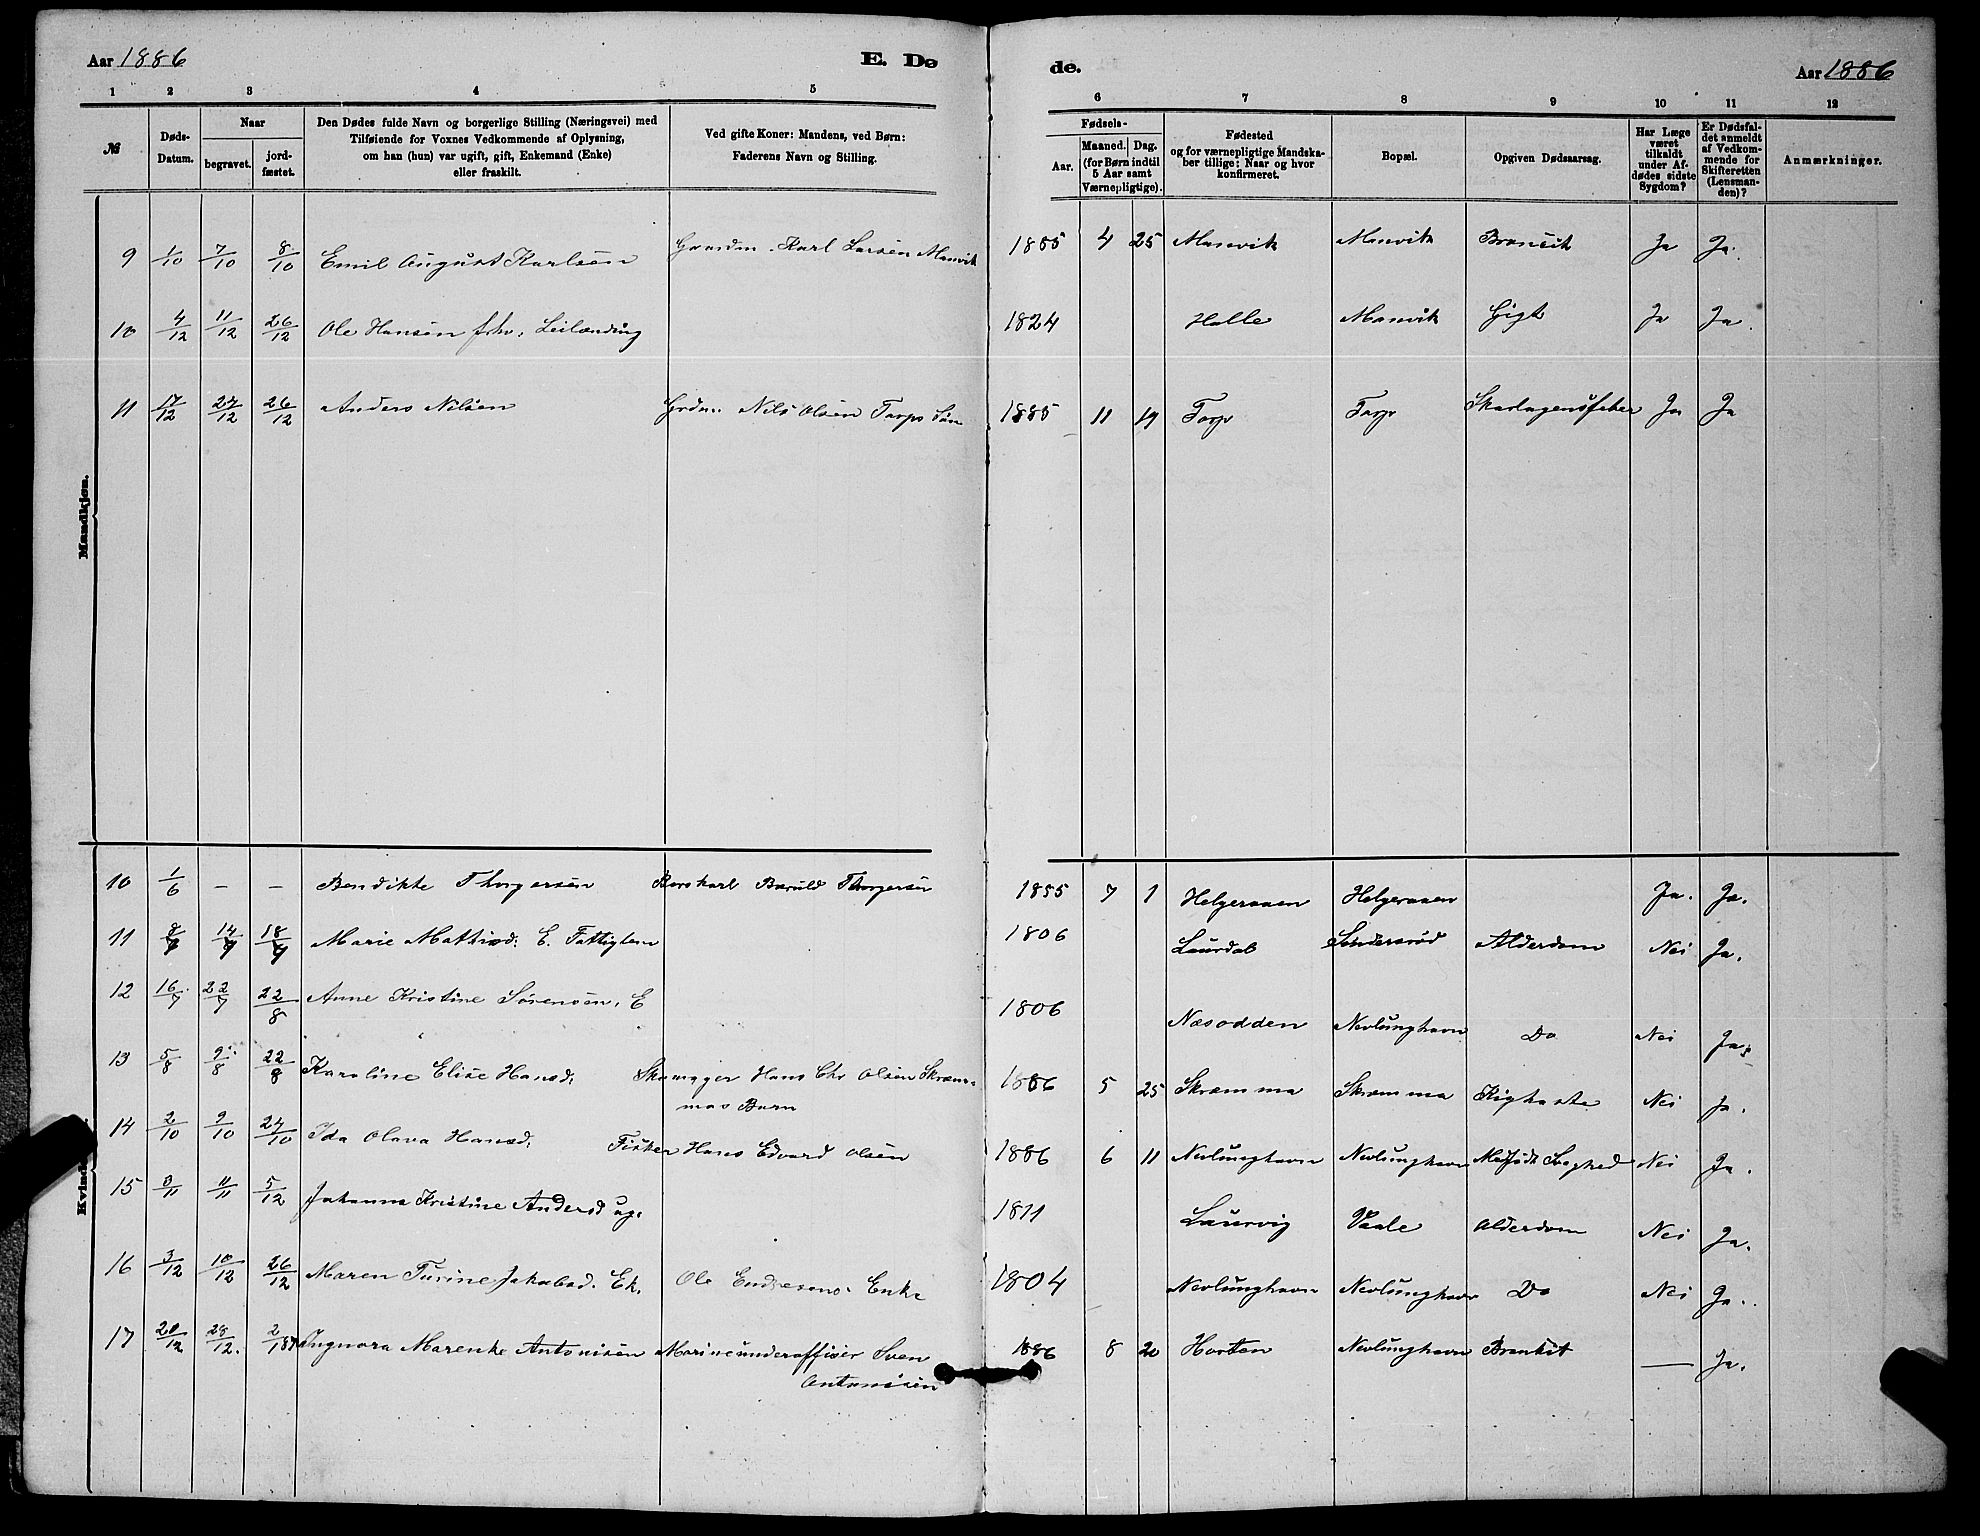 Aar 1886 E. Dø
1 2 3 4 5
№
Døds-Datum.
Naar
begravet.
jord-fæstet.
Den Dødes fulde Navn og borgerlige Stilling (Næringsvei) med
Tilføiende for Voxnes Vedkommende af Oplysning,
om han (hun) var ugift, gift, Enkemand (Enke)
eller fraskilt.
Ved gifte Koner: Mandens, ved Børn:
Faderens Navn og Stilling.
Mandkjøn.
9 1/10 7/10 8/10 Emil August Karlsen Karl Larsen Manvik
10 4/12 11/12 26/12 Ole Hansen frhv. Leilænding
11 17/12 27/12 26/12 Anders Nilsen Grdm. Nils Olsen Torps Søn
10 1/6 – – Bendikte Thorgersen Baruld Thorgersen
11 8/7 14/7 18/7 Marie Mathisd: E. Fattiglem
12 16/7 22/7 22/8 Anne Kristine Sørensen. E
13 5/8 9/8 22/8 Karoline Elise Hansd: Skomager Hans Chr Olsen Skræm-
mas Barn
14 2/10 9/10 24/10 Ida Olava Hansd: Fisker Hans Edvard Olsen
15 3/11 11/11 5/12 Johanne Kristine Andersd ug.
16 3/12 10/12 26/12 Maren Turine Jakobsd. Ek. Ole Endresens Enke
17 20/12 28/12. 2/1 87 Ingnora Marenke Antonisen Marineunderoffiser Sven
Antonisen
de. Aar 1886
6 7 8 9 10 11 12
Fødsels-
Aar.
Maaned. Dag.
(for Børn indtil
5 Aar samt
Værnepligtige).
Fødested
og for værnepligtige Mandska-
ber tillige: Naar og hvor
konfirmeret.
Bopæl.
Opgiven Dødsaarsag.
Har Læge
været
tilkaldt
under Af-
dødes sidste
Sygdom?
Er Dødsfal-
det anmeldt
af Vedkom-
mende for
Skifteretten
(Lensman-
den)?
Anmærkninger.
1885 4 25 Manvik Manvik Ja Ja.
1824 Halle Manvik Gigt Ja Ja.
1885 11 19 Torp Torp Skarlagensfeber Ja Ja
1855 7 1 Helgeraaen Helgeraaen Ja. Ja.
1806 Laurdal Søndersrød Alderdom Nei Ja.
1806 Næsodden Nevlunghavn Do Nei Ja.
1886 5 25 Skræmma Skræmma Kighoste Nei Ja.
1886 6 11 Nevlunghavn Nevlunghavn Medfødt Svaghed Nei Ja.
1811 Laurvig Vaale Alderdom Nei Ja.
1804 Nevlunghavn Nevlunghavn Do Nei Ja.
1886 8 20 Horten Nevlunghavn Bronkit — Ja.